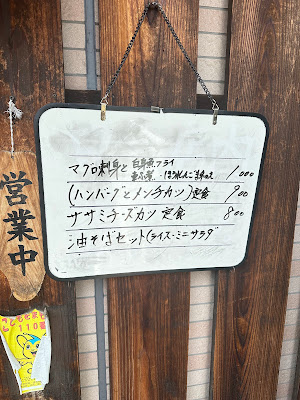 マグロ刺身と 白身魚フライ
1000
(ハンバーグとメンチカツ)定食 900
ササミチーズカツ 定食 800
油そばセット(ライス・ミニサラダ
営業中
こども110番